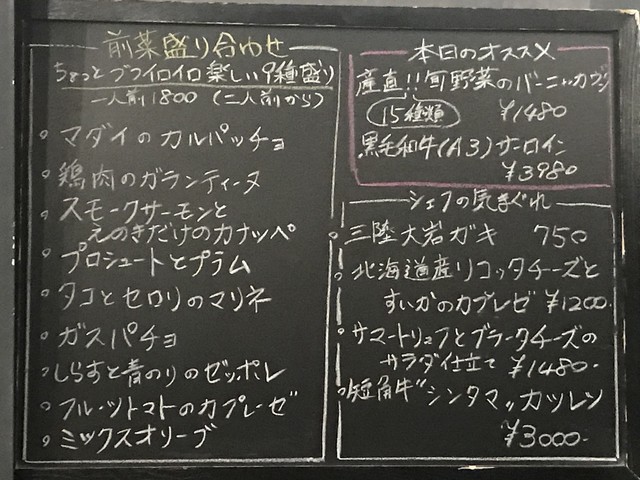 前菜盛り合わせ
ちょっとづつイロイロ楽しい9種盛り
一人前1800(二人前から)
マダイのカルパッチョ
鶏肉のガランティーヌ
スモークサーモンと
えのきだけのカナッペ
プロシュートとプラム
タコとセロリのマリネ
ガスパチョ
しらすと青のりのゼッポレ
フルーツトマトのカプレーゼ
ミックスオリーブ
本日のオススメ
産直!!旬野菜のバーニャカウダ
15種類 ¥1480
黒毛和牛(A3)サーロイン
¥3980
シェフの気まぐれ
三陸大岩ガキ 750
北海道産リコッタチーズと
すいかのカプレゼ ¥1200.
サマートリュフとブラータチーズの
サラダ仕立て ¥1480-
短角牛"シンタマ"カツレツ
¥3000-